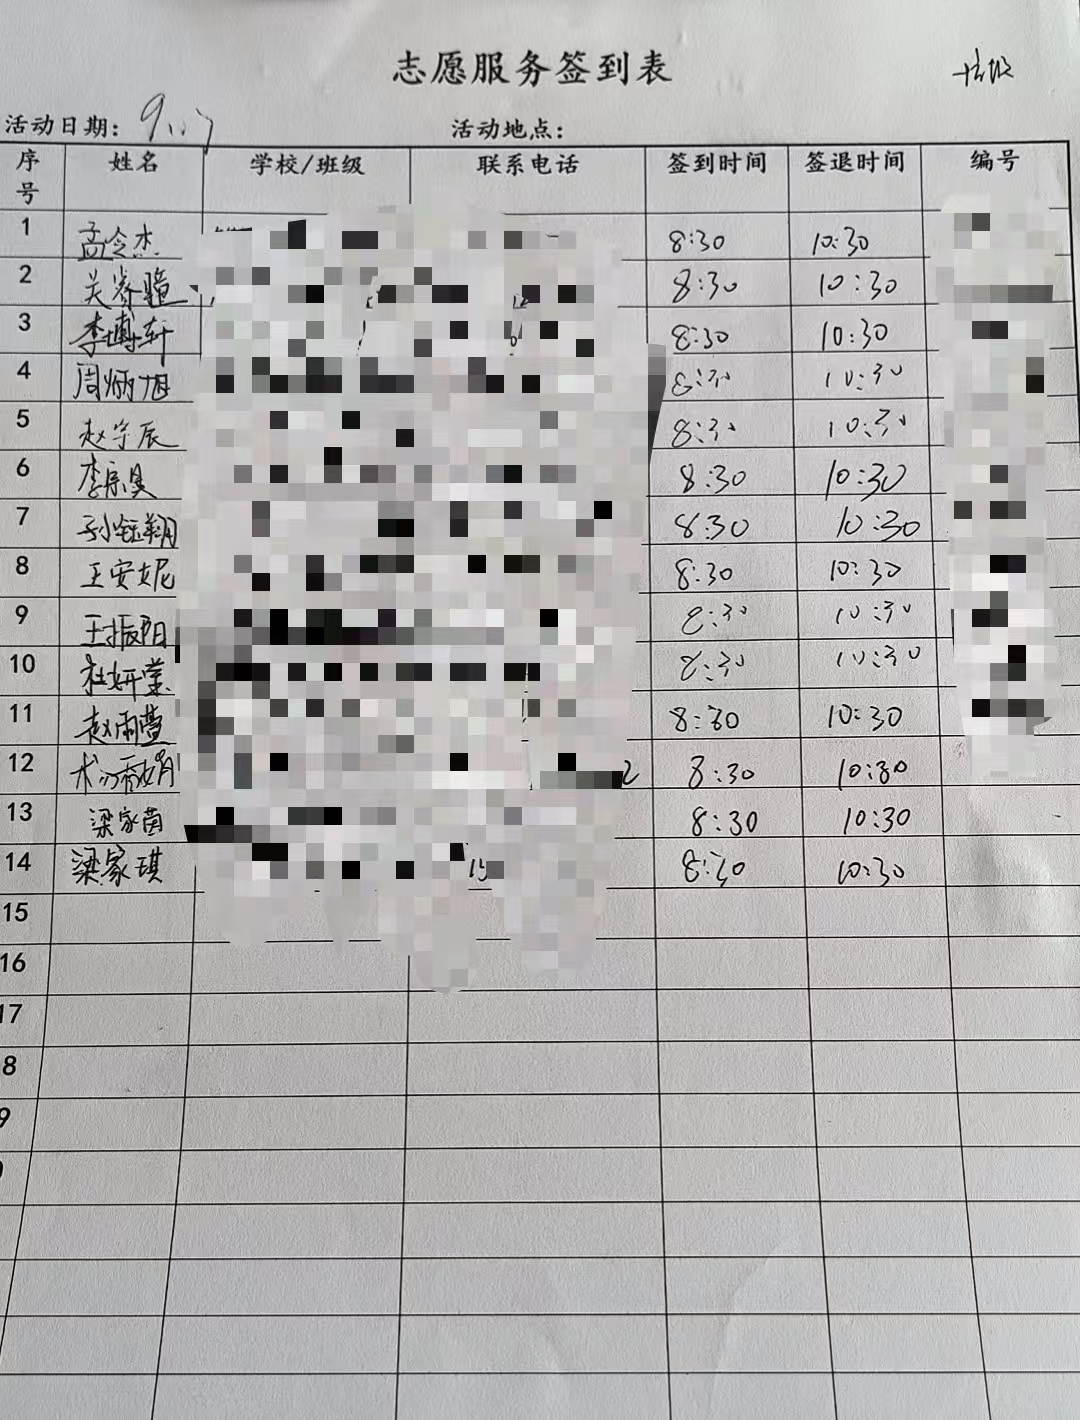 志愿服务签到表
活动日期: 9.17 活动地点:
序号 姓名 学校/班级 联系电话 签到时间 签退时间 编号
1 孟令杰 8:30 10:30
2 关睿 8:30 10:30
3 李博轩 8:30 10:30
4 周炳旭 8:30 10:30
5 赵宇辰 8:30 10:30
6 李宗昊 8:30 10:30
7 孙钰翔 8:30 10:30
8 王安妮 8:30 10:30
9 王振阳 8:30 10:30
10 杜妍莹 8:30 10:30
11 赵雨萱 8:30 10:30
12 2 8:30 10:30
13 梁家茵 8:30 10:30
14 梁家琪 15 8:30 10:30
15
16
17
8
9